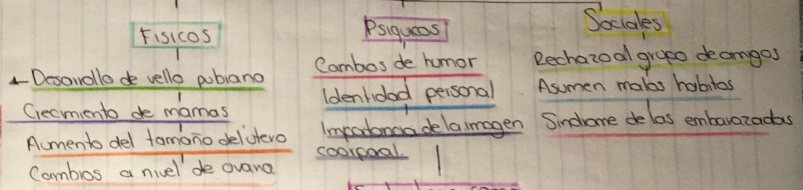 Fisicos
- Desarrollo de vello pubiano
Crecimiento de mamas
Aumento del tamaño del útero
Cambios a nivel de ovario.
Psiquicos
Cambios de humor
Identidad personal
Importancia de la imagen
coorporal.
Sociales
Rechazo al grupo de amigos
Asumen malos habitos
Sindrome de las embarazadas